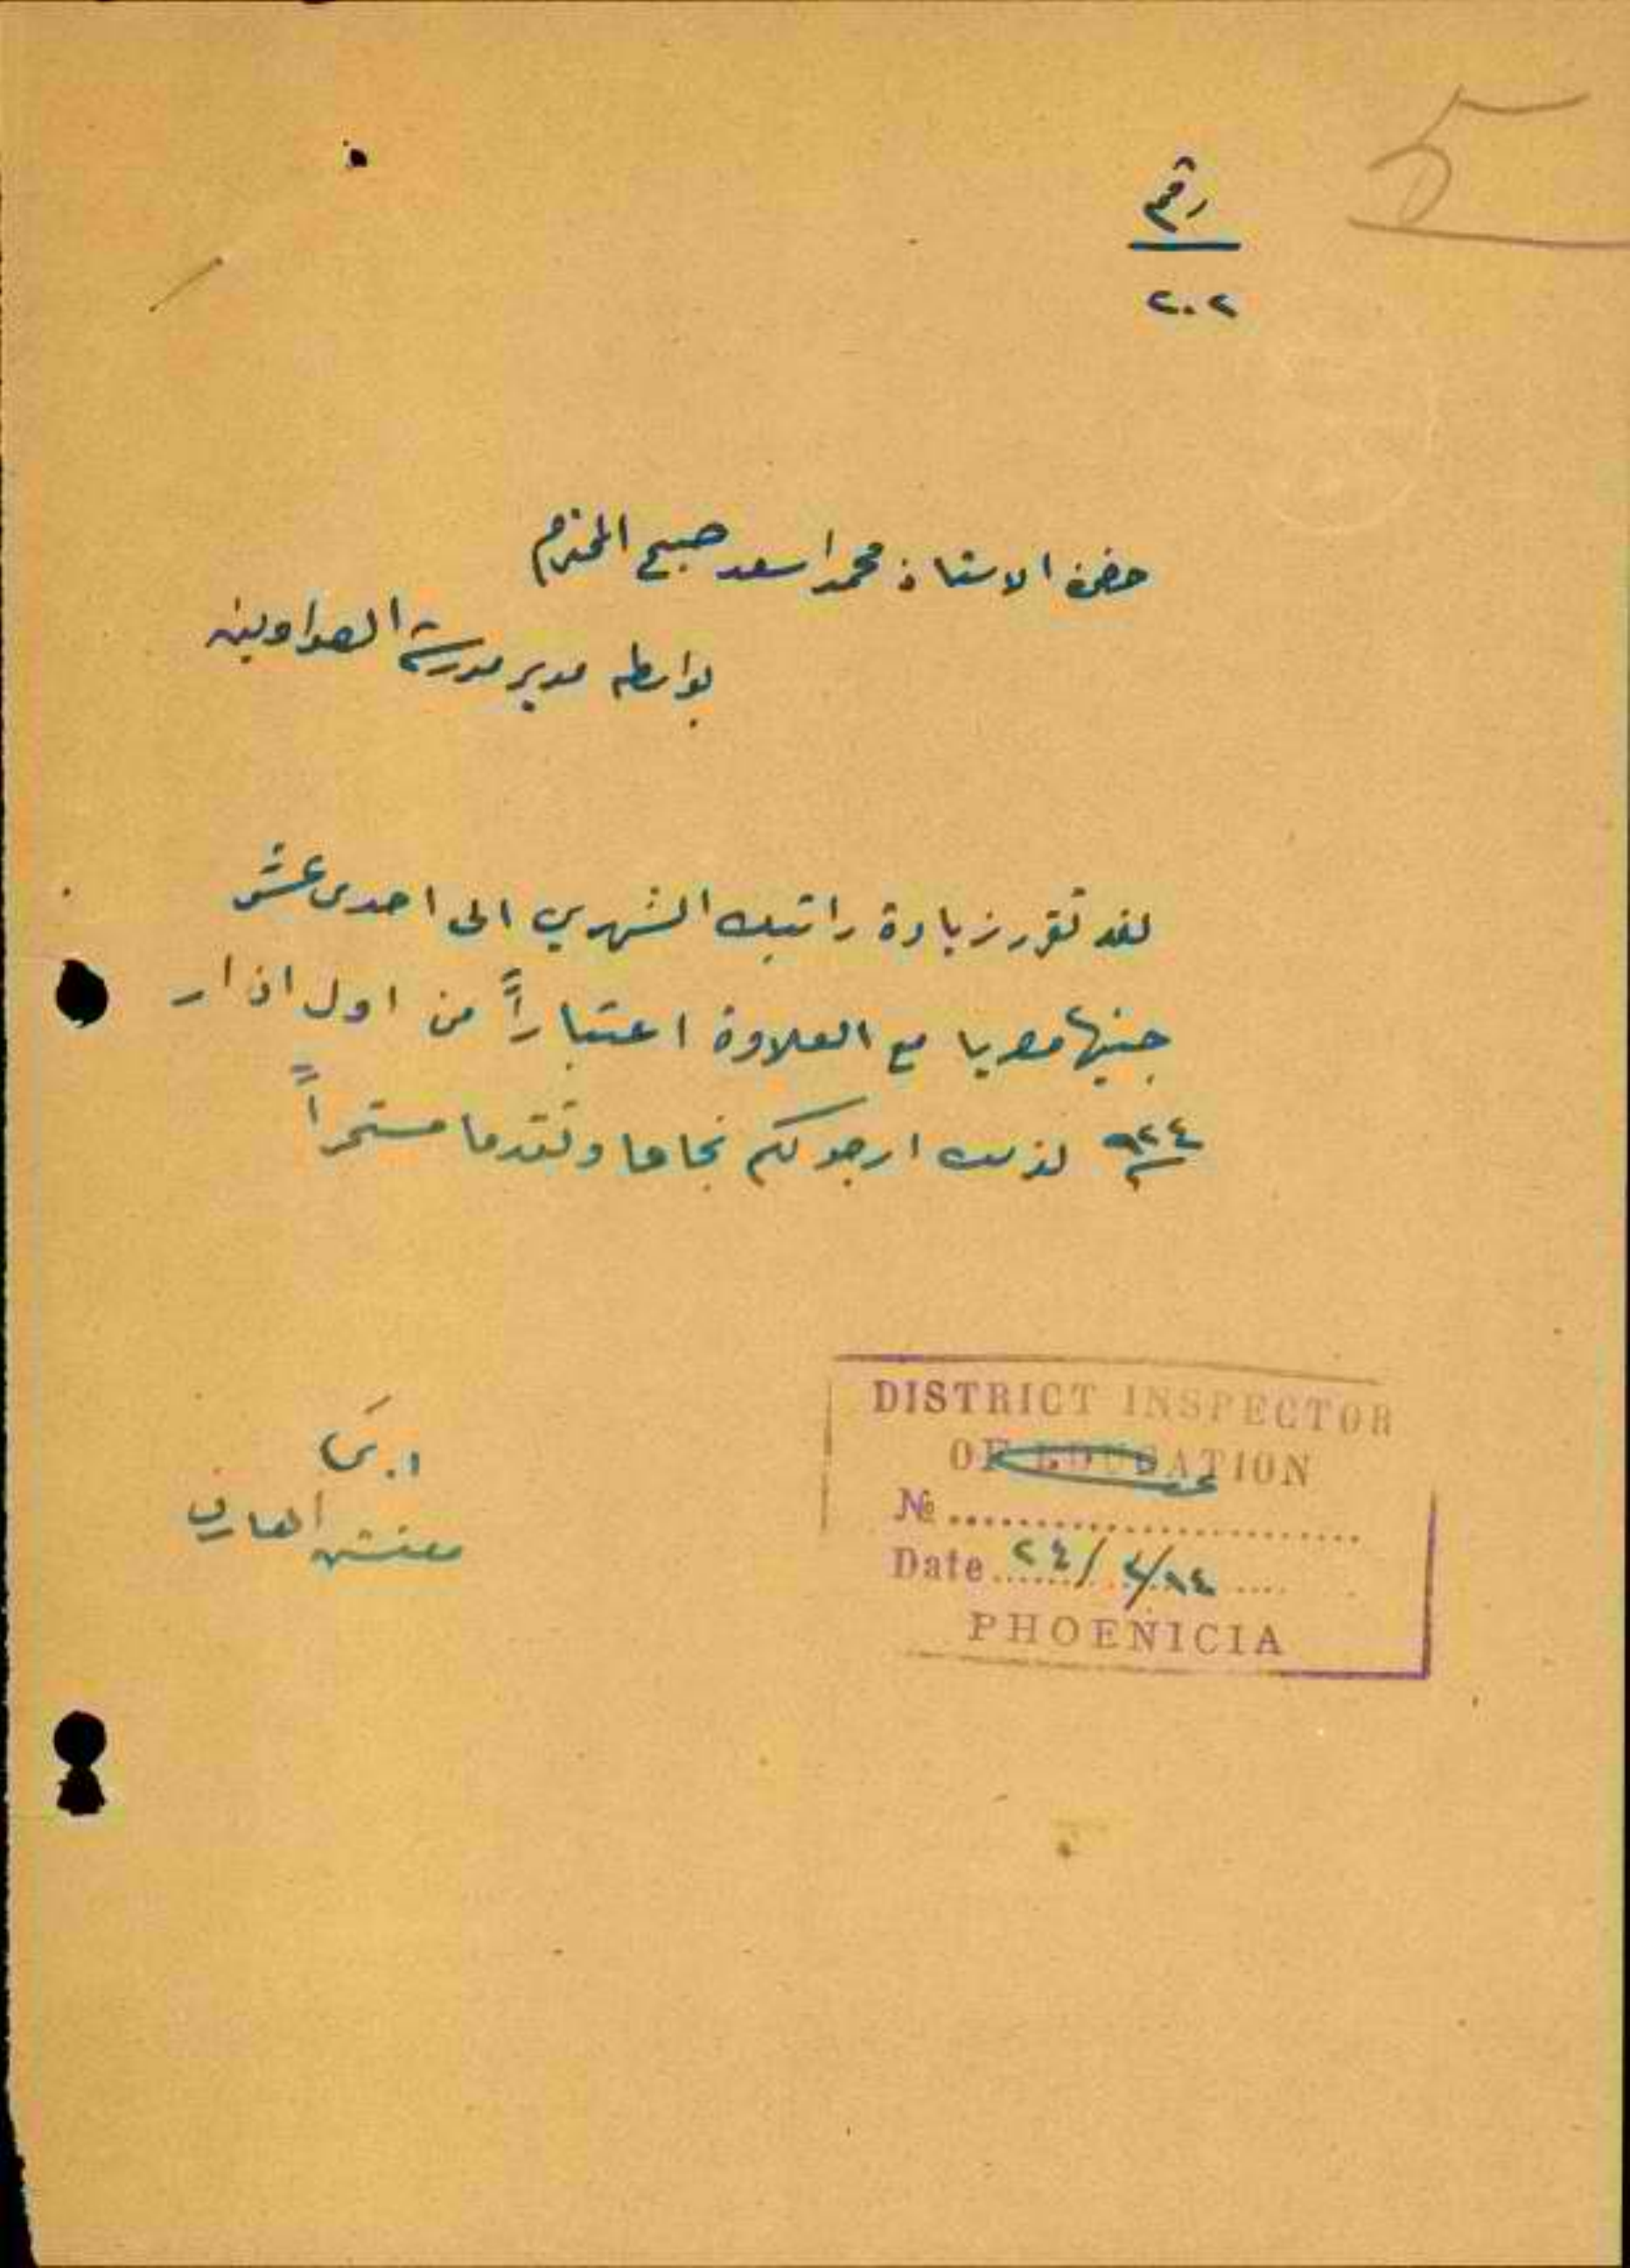 5
رقم
٢٠٢
حضرة الاستاذ محمد اسعد صبح المحترم
بواسطة مدير مدرسة
لقد تقرر زيادة راتبك الشهري الى احدى عشر
جنيها مصريا مع العلاوة اعتباراً من اول اذار
٩٢٤ لذلك ارجو لكم نجاحا وتقدما مستمراً
DISTRICT INSPECTOR
OF EDUCATION
№
Date ٢٤/
PHOENICIA
مفتش المعارف